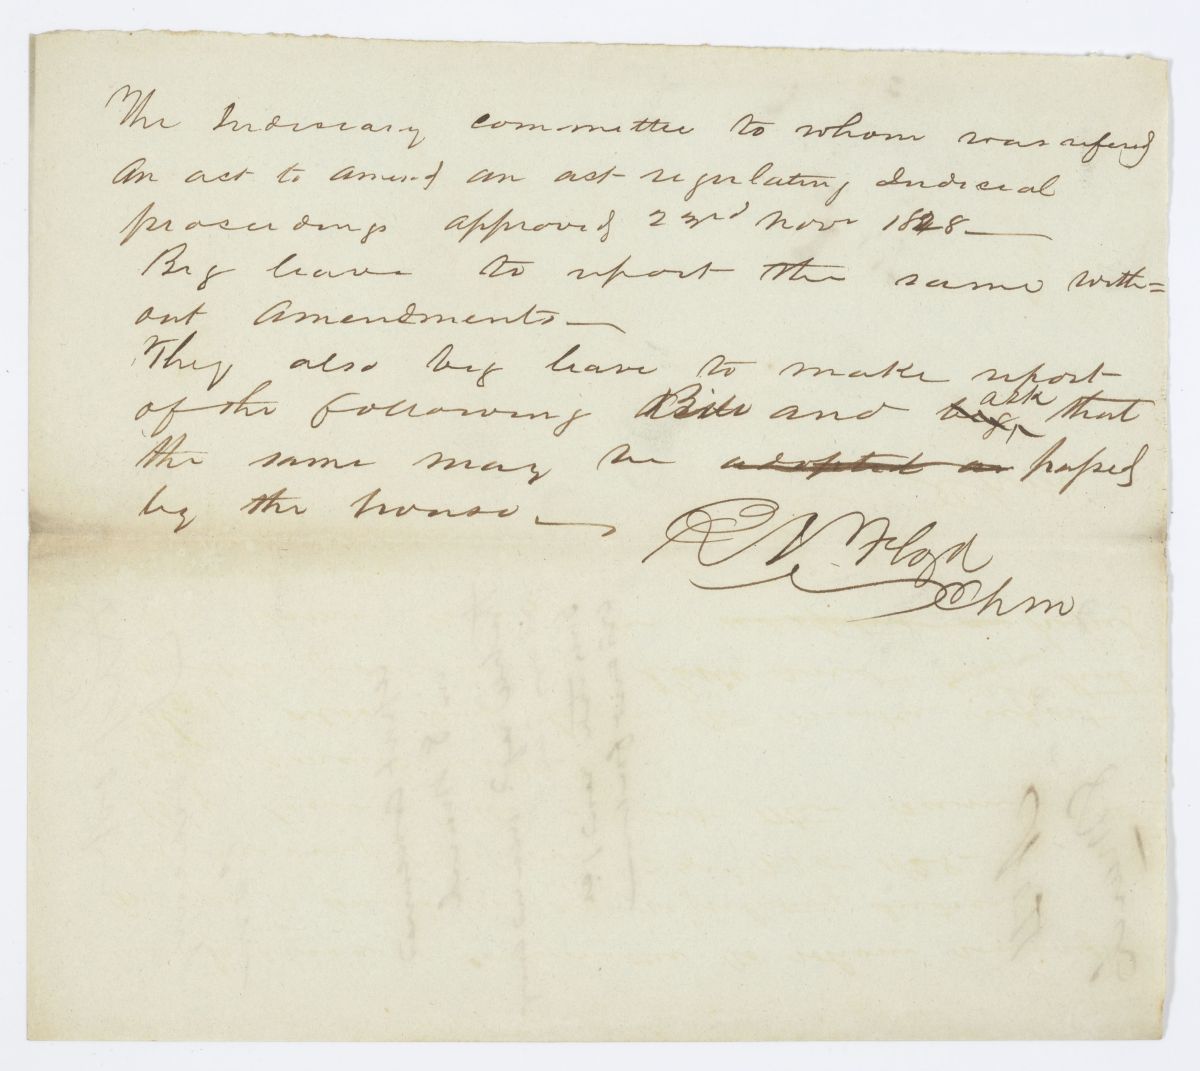 The Judiciary committee to whom was refered
An act to amend an act regulating Judicial
proceedings approved 23rd Novr 1828 —
Beg leave to report the same with=
out Amendments —
They also beg leave to make report
of the following Bill and beg, ask that
the same may be adopted as passed
by the house —
R N. Floyd
Chm